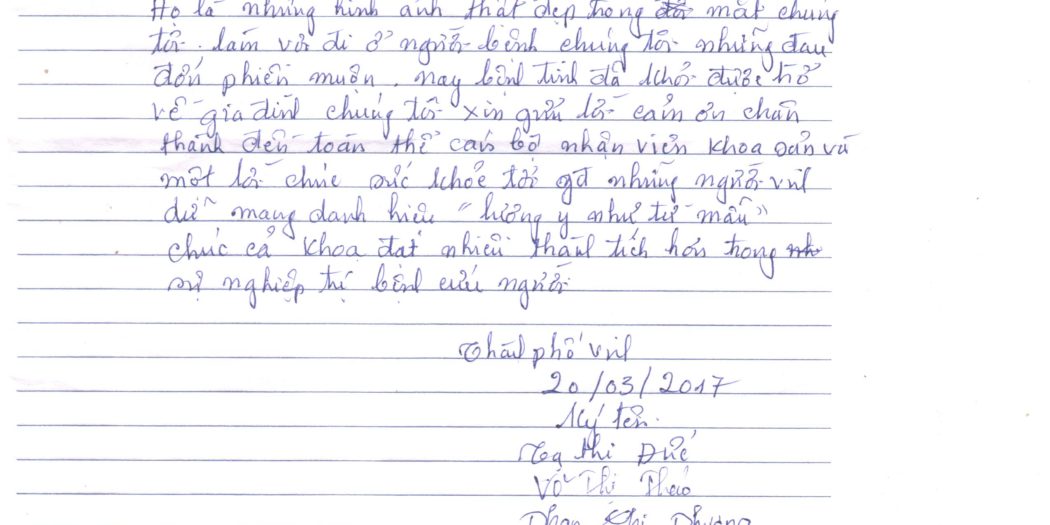 Họ là những hình ảnh thật đẹp trong mắt chúng
tôi. làm vơi đi ở người bệnh chúng tôi những đau
đớn phiền muộn. nay bệnh tình đã khỏi được trở
về gia đình chúng tôi xin gửi lời cảm ơn chân
thành đến toàn thể cán bộ nhân viên khoa sản và
một lời chúc sức khỏe tới những người
mang danh hiệu "lương y như từ mẫu"
chúc cả khoa đạt nhiều thành tích hơn trong
sự nghiệp trị bệnh cứu người
Thành phố vinh
20/03/2017
Ký tên.
Thị Đức
Võ Thị Thảo
Phan